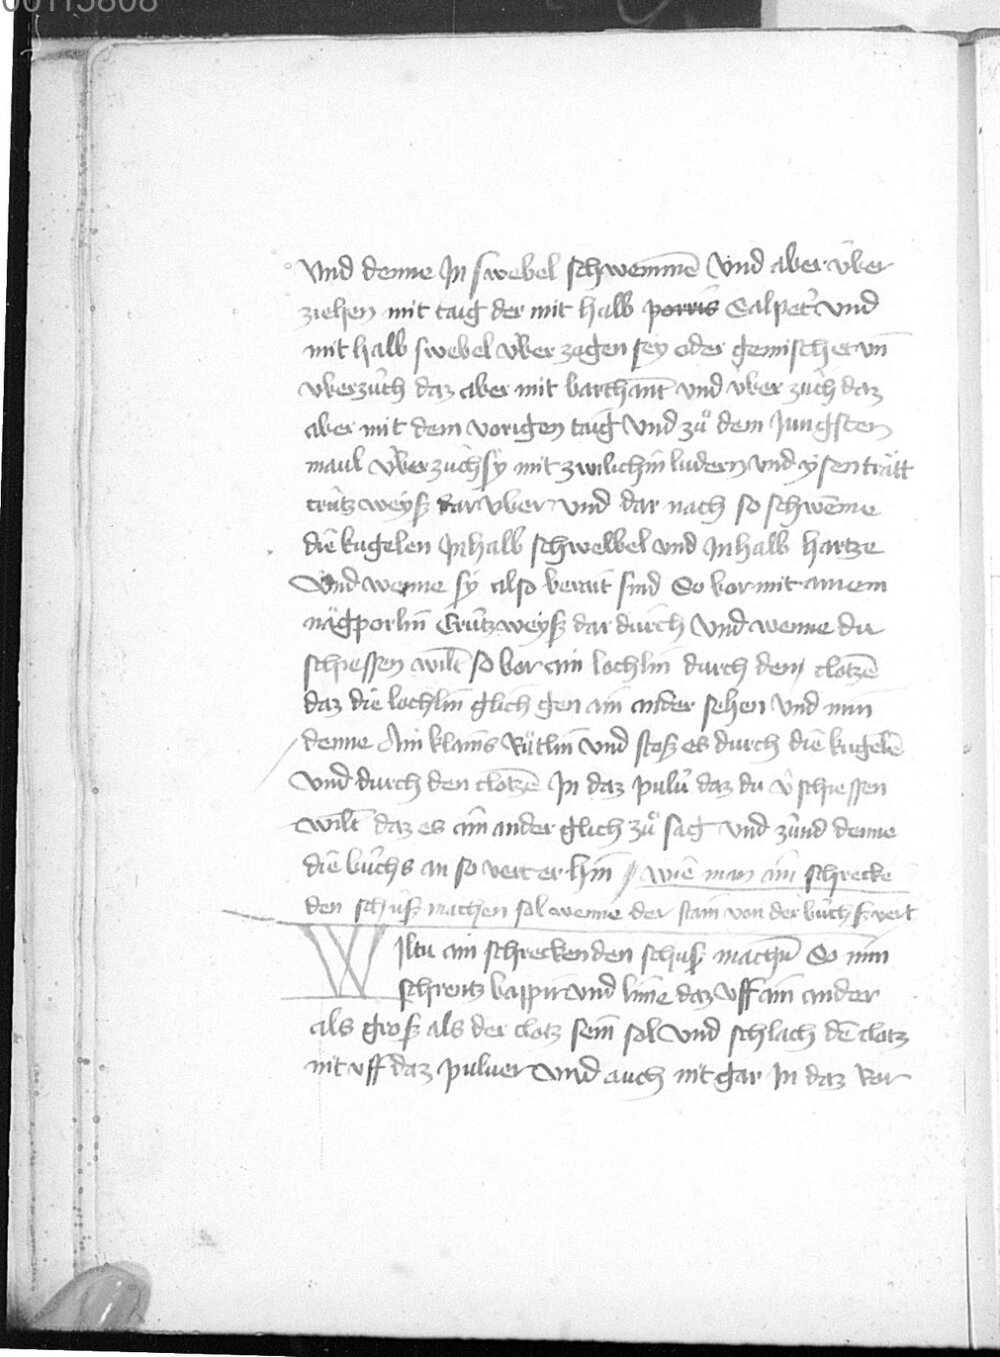 00115808
Vnd denne In swebel schwemmē Vnd aber vber
ziehen mit taig der mit halb porris Salpet' vnd
mit halb swebel vber zogen sey oder gemischet vn̄
vberzúch daz aber mit barchant vnd vber zúch daz
aber mit dem vorigen taig vnd zů dem Jungsten
maul vberzúch sy mit zwilichin ludern vnd ysenträtt
crútz weyß dar vber vnd dar nach so schwēme
die kugelen In halb schwelbel vnd In halb hartze
Vnd wenne sy also berait sind So bor mit ainem
nägporlin Crútzweyß dar durch Vnd wenne du
schiessen wilt so bor ain lochlin durch den clotzē
daz die lochlin glich gen ain ander sehen vnd nim
denne Ain klains Rütlin vnd stoß es durch die kugelē
vnd durch den clotzē In daz pulu' daz du v'schiessen
wilt daz es ain ander glich zů sag vnd zúnd denne
die búchs an so vert er hin // wie man ain schrecke
den schuß machen sol wenne der stain von der búchß vert
Wiltu ain schreckenden schuß machen So nim
schrentz bappir vnd lime daz vff ain ander
als groß als der clotz sein sol vnd schlach dē clotz
nit vff daz puluer vnd auch nit gar In daz Ror